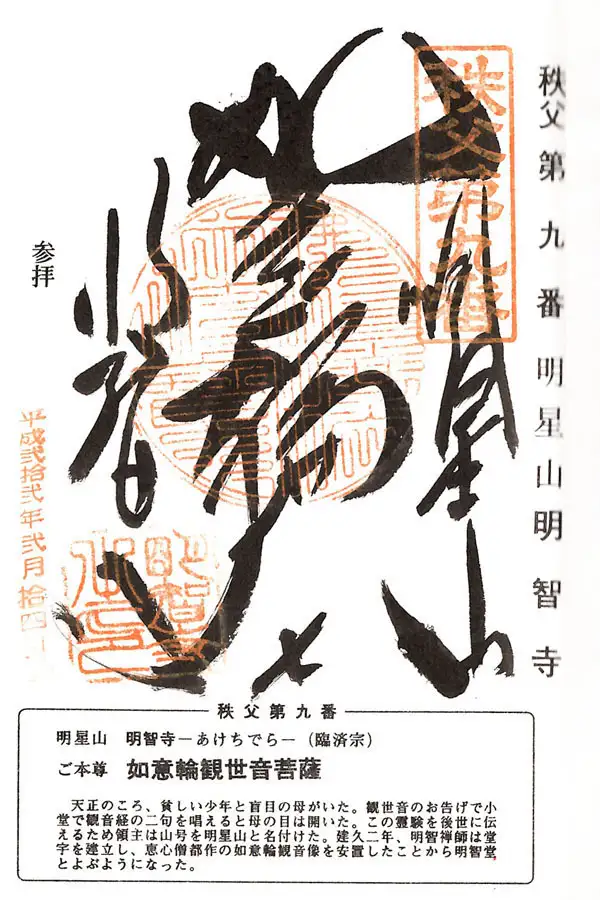 秩父第九番明星山明智寺
秩父第九番
明星山
参拝
平成弐拾弐年弐月拾四
秩父第九番
明星山 明智寺―あけちでら―(臨済宗)
ご本尊 如意輪観世音菩薩
天正のころ、貧しい少年と盲目の母がいた。観世音のお告げで小
堂で観音経の二句を唱えると母の目は開いた。この霊験を後世に伝
えるため領主は山号を明星山と名付けた。建久二年、明智禅師は堂
宇を建立し、恵心僧都作の如意輪観音像を安置したことから明智堂
とよぶようになった。